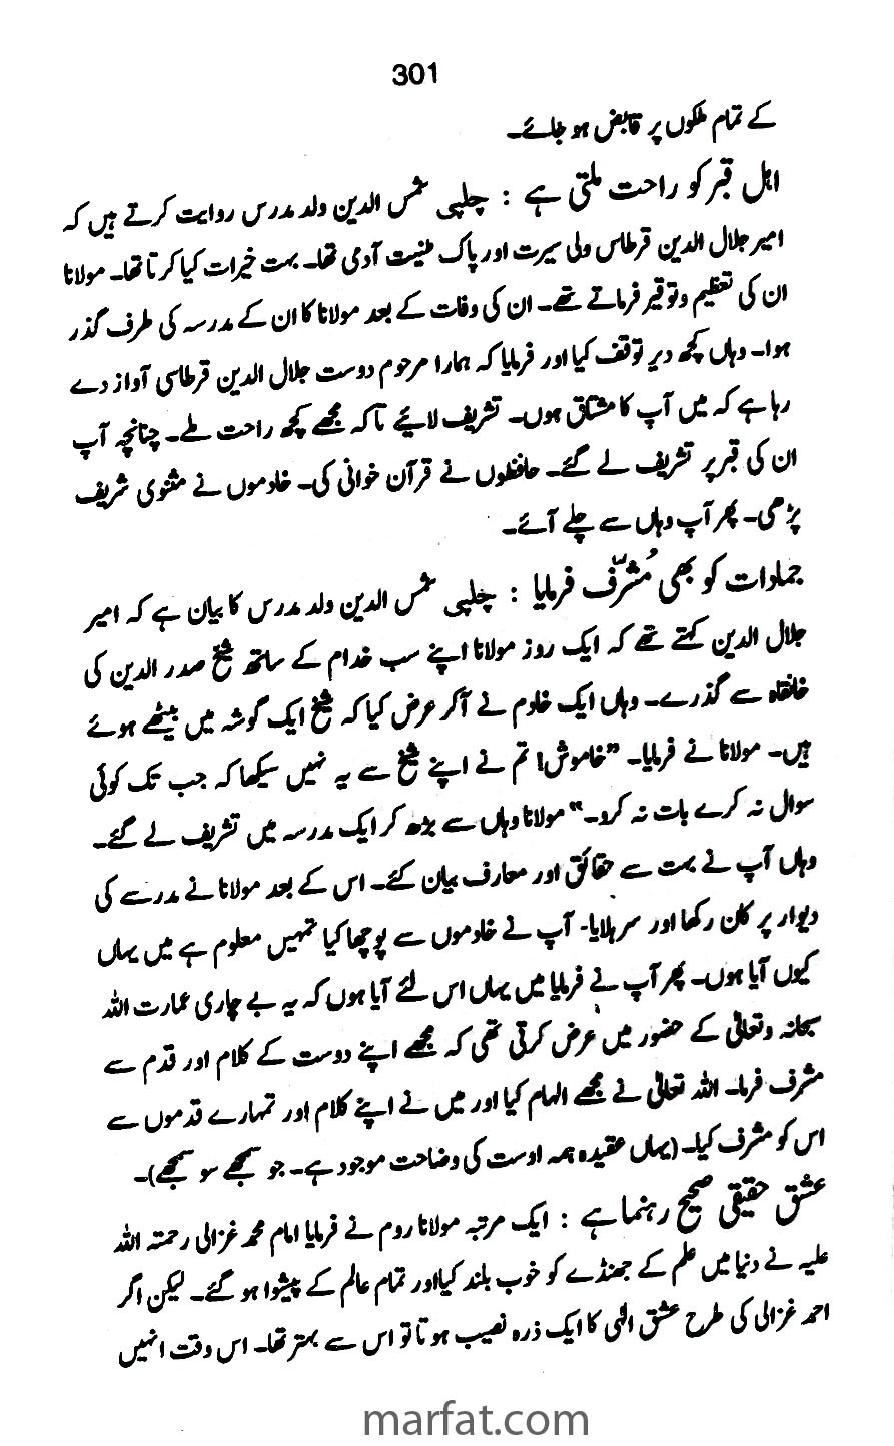 301
کے تمام ملکوں پر قابض ہو جائے۔
اہل قبر کو راحت ملتی ہے : چلپی شمس الدین ولد مدرس روایت کرتے ہیں کہ
امیر جلال الدین قرطاس ولی سیرت اور پاک طینت آدمی تھا۔ بہت خیرات کیا کرتا تھا۔ مولانا
ان کی تعظیم و توقیر فرماتے تھے۔ ان کی وفات کے بعد مولانا کا ان کے مدرسہ کی طرف گذر
ہوا۔ وہاں کچھ دیر توقف کیا اور فرمایا کہ ہمارا مرحوم دوست جلال الدین قرطاسی آواز دے
رہا ہے کہ میں آپ کا مشتاق ہوں۔ تشریف لائیے تاکہ مجھے کچھ راحت ملے۔ چنانچہ آپ
ان کی قبر پر تشریف لے گئے۔ حافظوں نے قرآن خوانی کی۔ خادموں نے مثنوی شریف
پڑھی۔ پھر آپ وہاں سے چلے آئے۔
جمادات کو بھی مُشرّف فرمایا : چلپی شمس الدین ولد مدرس کا بیان ہے کہ امیر
جلال الدین کہتے تھے کہ ایک روز مولانا اپنے سب خدام کے ساتھ شیخ صدر الدین کی
خانقاہ سے گذرے۔ وہاں ایک خادم نے آکر عرض کیا کہ شیخ ایک گوشہ میں بیٹھے ہوئے
ہیں۔ مولانا نے فرمایا۔ ”خاموش! تم نے اپنے شیخ سے یہ نہیں سیکھا کہ جب تک کوئی
سوال نہ کرے بات نہ کرو۔“ مولانا وہاں سے بڑھ کر ایک مدرسہ میں تشریف لے گئے۔
وہاں آپ نے بہت سے حقائق اور معارف بیان کئے۔ اس کے بعد مولانا نے مدرسے کی
دیوار پر کان رکھا اور سر ہلایا۔ آپ نے خادموں سے پوچھا کیا تمہیں معلوم ہے میں یہاں
کیوں آیا ہوں۔ پھر آپ نے فرمایا میں یہاں اس لئے آیا ہوں کہ یہ بے چاری عمارت اللہ
سبحانہ وتعالیٰ کے حضور میں عرض کرتی تھی کہ مجھے اپنے دوست کے کلام اور قدم سے
مشرف فرما۔ اللہ تعالیٰ نے مجھے الہام کیا اور میں نے اپنے کلام اور تمہارے قدموں سے
اس کو مشرف کیا۔ (یہاں عقیدہ ہمہ اوست کی وضاحت موجود ہے۔ جو سمجھے سو سمجھے)۔
عشق حقیقی صحیح رہنما ہے : ایک مرتبہ مولانا روم نے فرمایا امام محمد غزالی رحمتہ اللہ
علیہ نے دنیا میں علم کے جھنڈے کو خوب بلند کیا اور تمام عالم کے پیشوا ہو گئے۔ لیکن اگر
احمد غزالی کی طرح عشق الٰہی کا ایک ذرہ نصیب ہوتا تو اس سے بہتر تھا۔ اس وقت انہیں
marfat.com